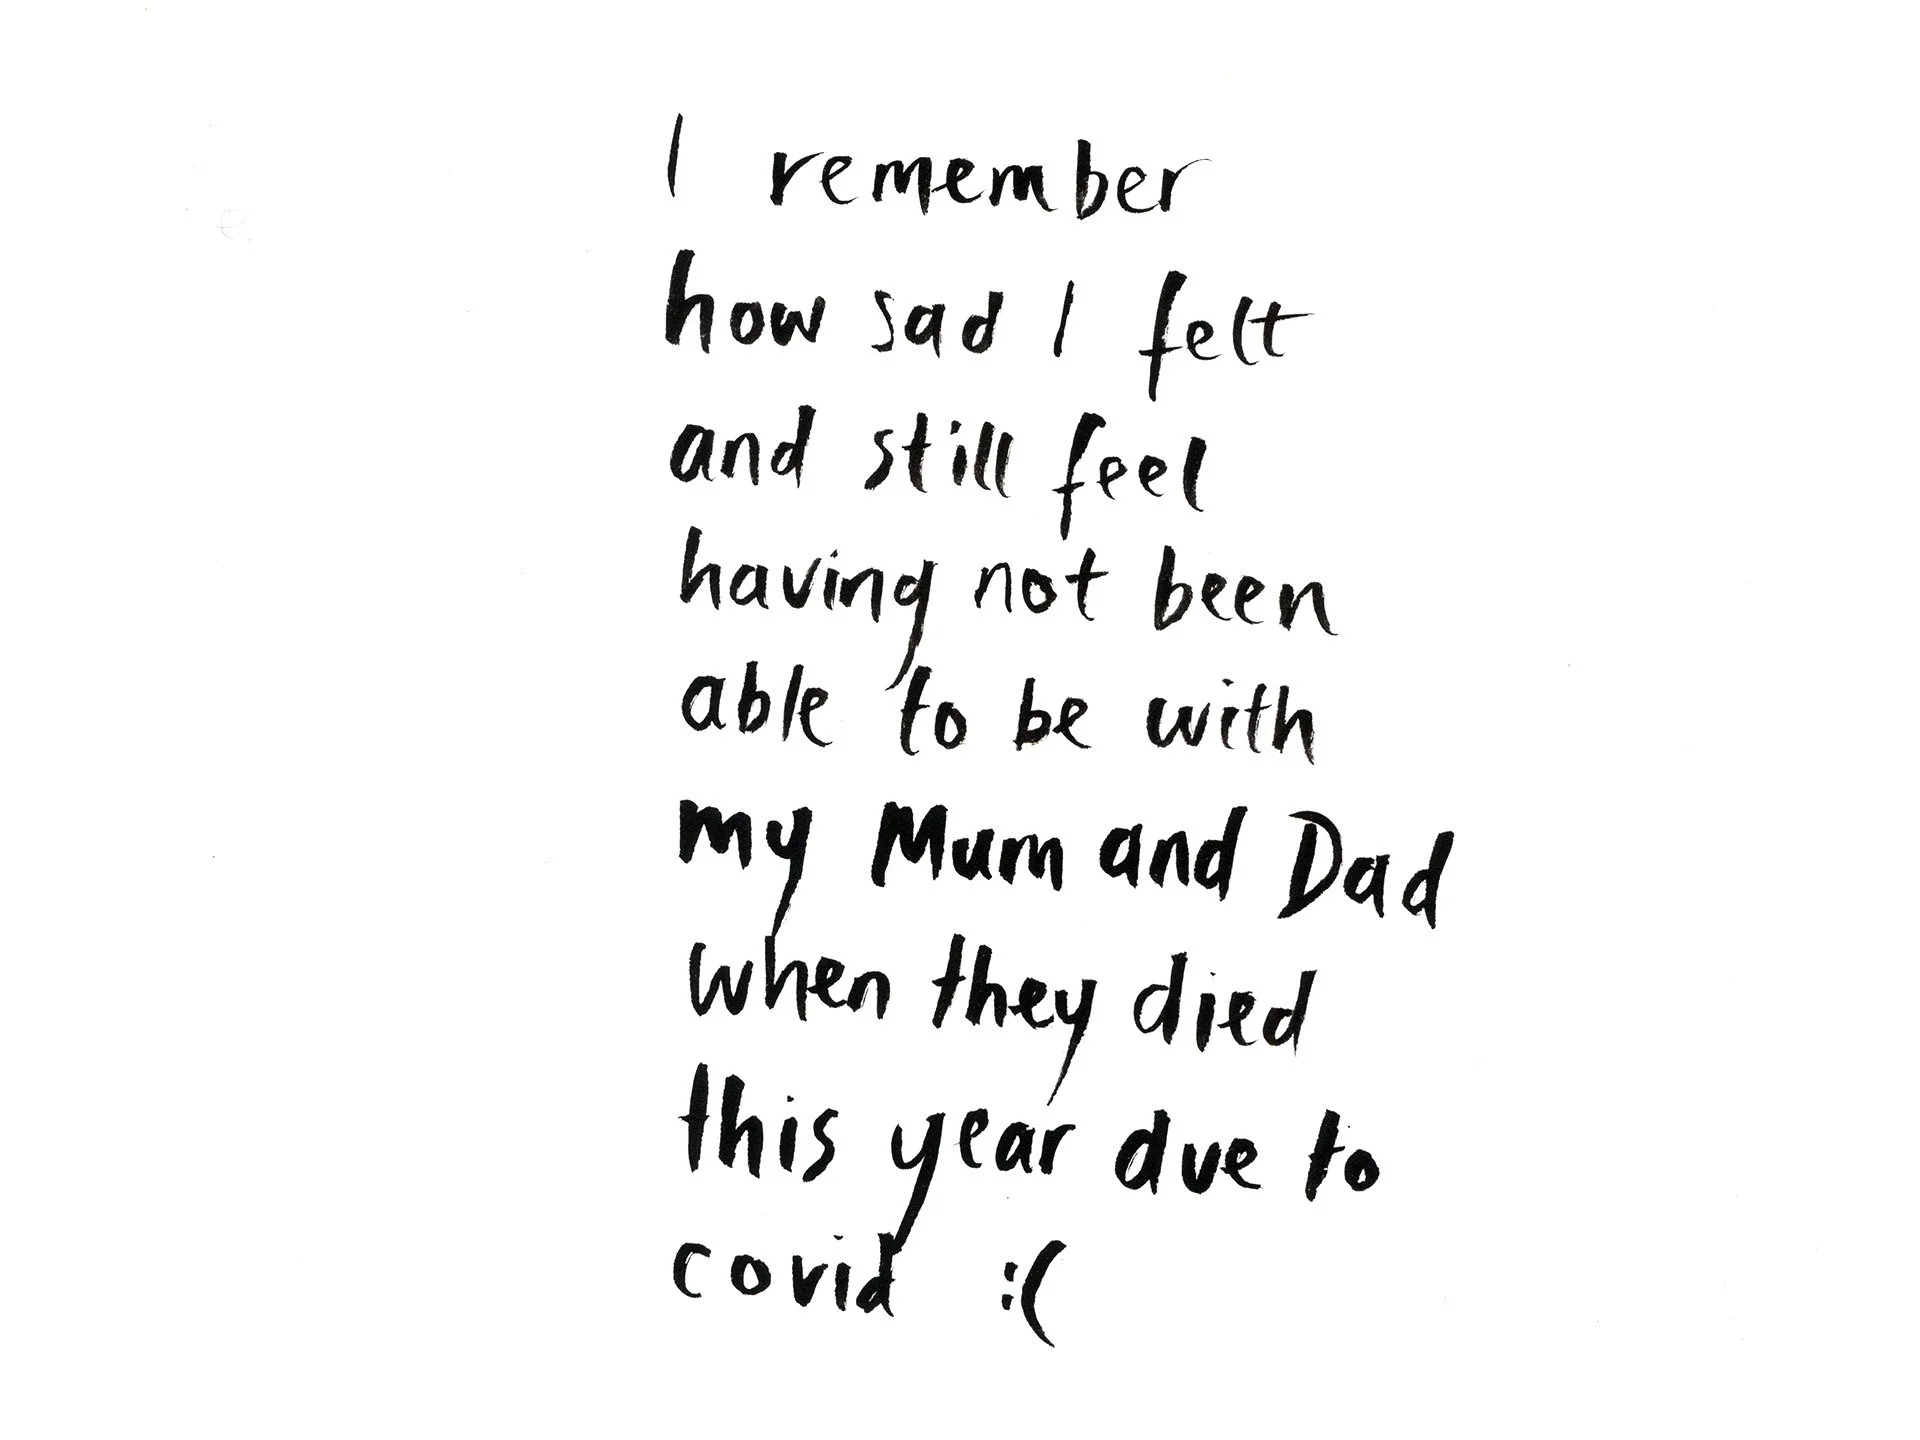 I remember
how sad I felt
and still feel
having not been
able to be with
my Mum and Dad
when they died
this year due to
covid :(